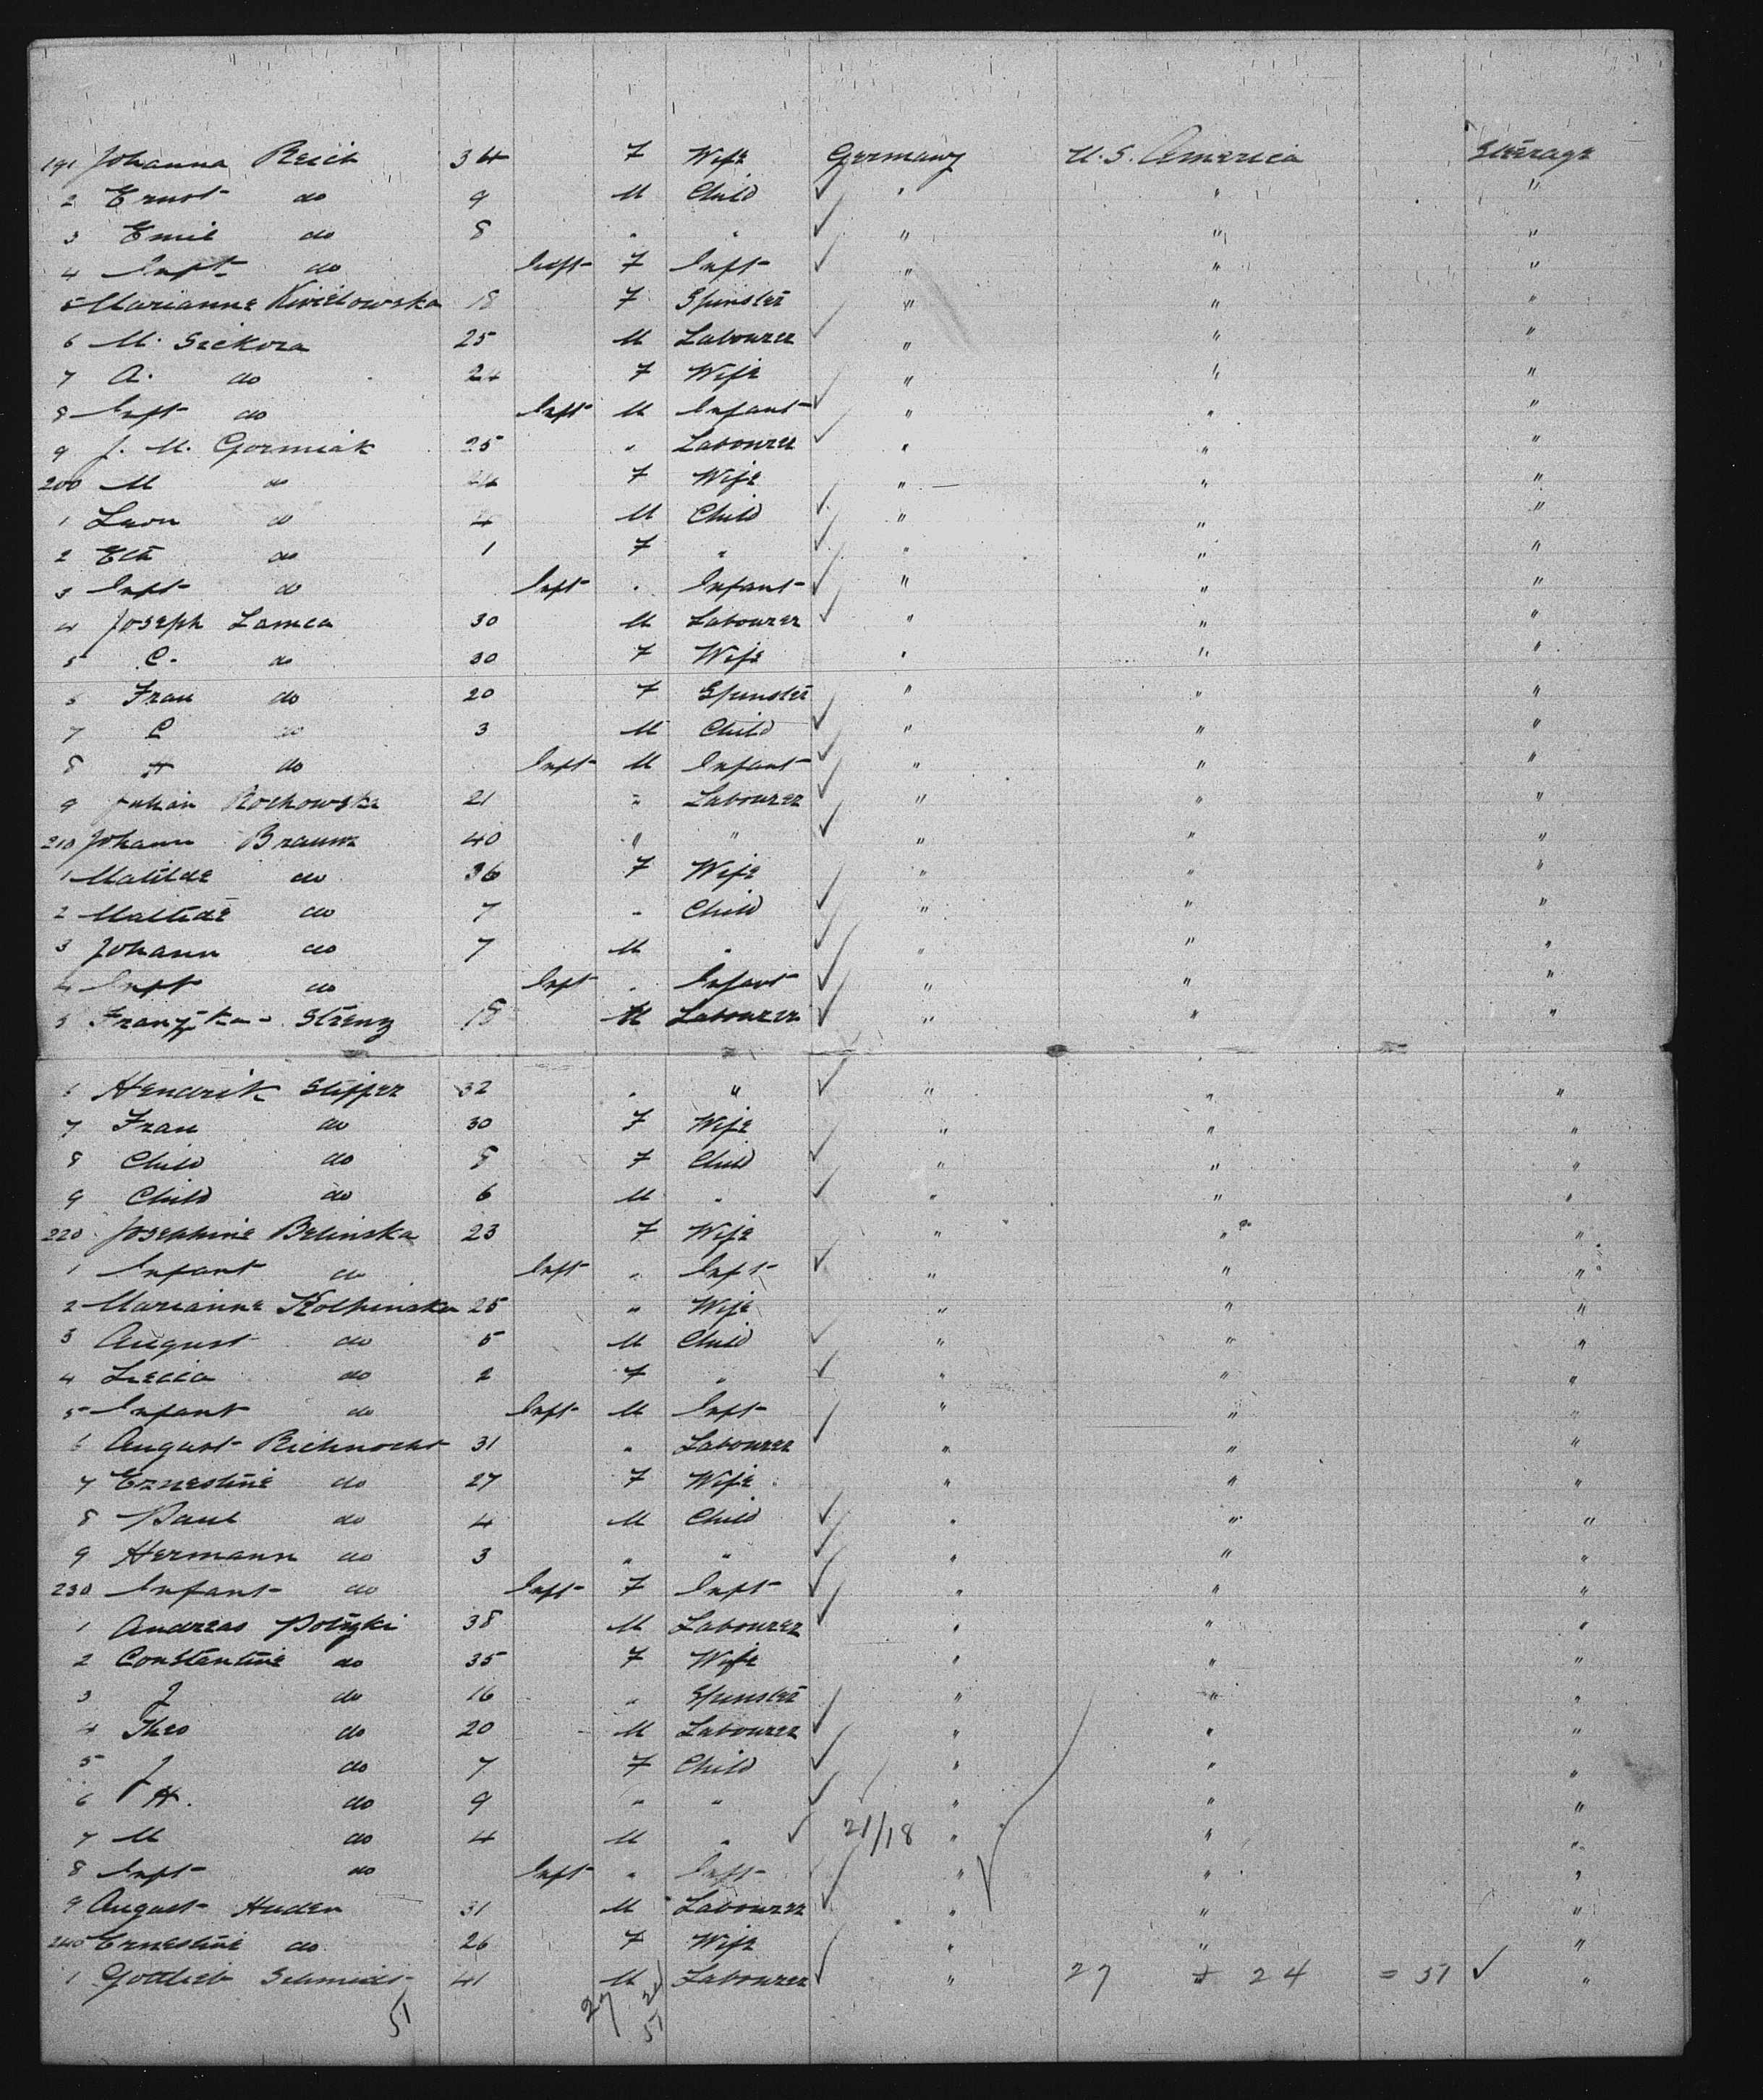 191 Johanna Reich 34 F Wife Germany U.S. America Steerage
2 Ernst do 9 M Child ✓ " " "
3 Emil do 8 " " ✓ " " "
4 Inft do Inft F Inft ✓ " " "
5 Marianne 18 F Spinster " " "
6 M. Sickora 25 M Labourer ✓ " " "
7 A. do 24 F Wife " " "
8 Inft do Inft M Infant ✓ " " "
9 J. M. Gormiak 25 " Labourer ✓ " " "
200 M do 24 F Wife " " "
1 Leon do 4 M Child ✓ " " "
2 do 1 F " ✓ " " "
3 Inft do Inft " Infant ✓ " " "
4 Joseph Lamca 30 M Labourer ✓ " " "
5 C. do 30 F Wife " " "
6 Frau do 20 F Spinster " " "
7 C do 3 M Child ✓ " " "
8 H do Inft M Infant ✓ " " "
9 Julian Rochowska 21 " Labourer ✓ " " "
210 Johann Braun 40 " " ✓ " " "
1 Matilde do 36 F Wife " " "
2 Matilde do 7 " Child ✓ " " "
3 Johann do 7 M " ✓ " " "
4 Inft do Inft " Infant ✓ " " "
5 Franzska Strenz 18 M Labourer ✓ " " "
6 Hendrik Stipper 32 " " ✓ " " "
7 Frau do 30 F Wife " " "
8 Child do 8 F Child ✓ " " "
9 Child do 6 M " ✓ " " "
220 Josephine Belinska 23 F Wife " " "
1 Infant do Inft " Inft ✓ " " "
2 Marianne Kolpinska 25 " Wife " " "
3 August do 5 M Child ✓ " " "
4 do 2 F " ✓ " " "
5 Infant do Inft M Inft ✓ " " "
6 August 31 " Labourer ✓ " " "
7 Ernestine do 27 F Wife " " "
8 Paul do 4 M Child ✓ " " "
9 Hermann do 3 " " ✓ " " "
230 Infant do Inft F Inft ✓ " " "
1 Andreas Potyzki 38 M Labourer ✓ " " "
2 Constantine do 35 F Wife " " "
3 J do 16 " Spinster ✓ " " "
4 Theo do 20 M Labourer ✓ " " "
5 J do 7 F Child ✓ " " "
6 H. do 9 " " ✓ " " "
7 M do 4 M " ✓ 21/18 " " "
8 Inft do Inft " Inft ✓ " " "
9 August Huden 31 M Labourer ✓ " " "
240 Ernestine do 26 F Wife " " "
1 Gottlieb Schmidt 41 M Labourer ✓ " 27 + 24 = 51 ✓ "
51 27 24
51